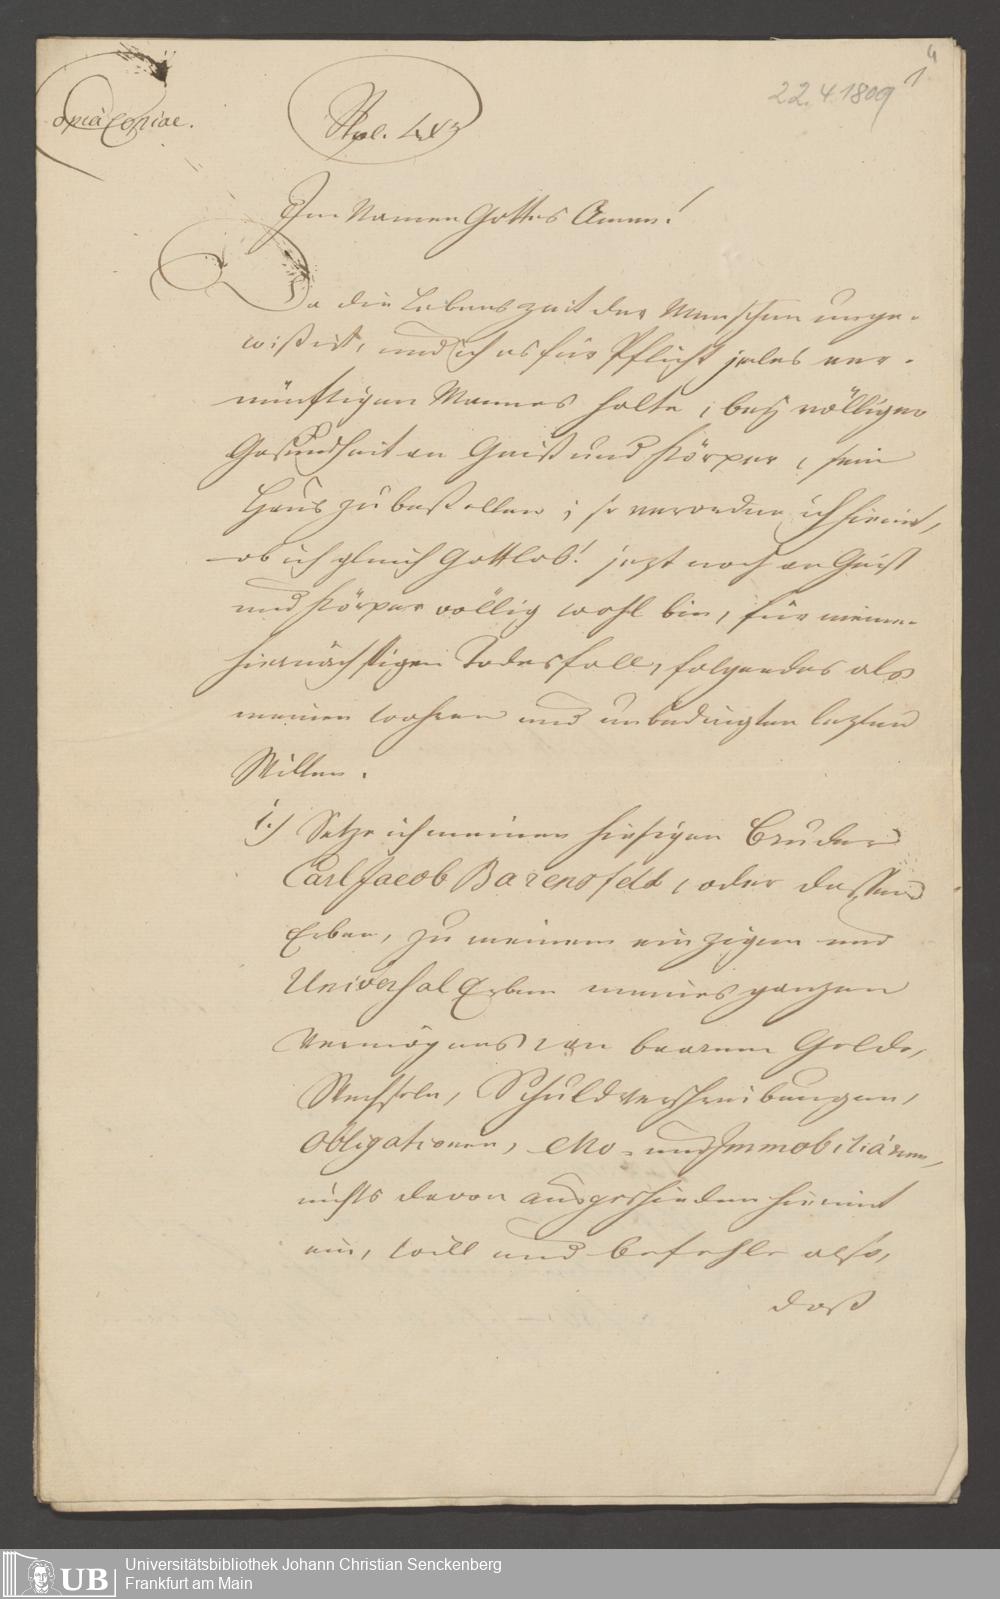 Copia Copiae.
22.4.1809
4
1
Im Namen Gottes Amen!
Da die Lebenszeit der Menschen unge-
wiß ist, und ich es für Pflicht jedes ver-
nünftigen Mannes halte, bey völliger
Gesundheit an Geist und Körper, sein
Haus zu bestellen; so verordne ich hiemit,
ob ich gleich Gottlob! jezt noch an Geist
und Körper völlig wohl bin, für meinen
hiernächstigen Todesfall, folgendes als
meinen wahren und unbedingten lezten
Willen.
1.) Setze ich meinen hiesigen Bruder
Carl Jacob Barensfeld, oder dessen
Erben, zu meinem einzigen und
Universal Erben meines ganzen
Vermögens an baarem Gelde,
Wechseln, Schuldverschreibungen,
Obligationen, Mo- und Immobiliarien,
nichts davon ausgeschieden hiemit
ein, will und befehle also,
daß
UB
Universitätsbibliothek Johann Christian Senckenberg
Frankfurt am Main